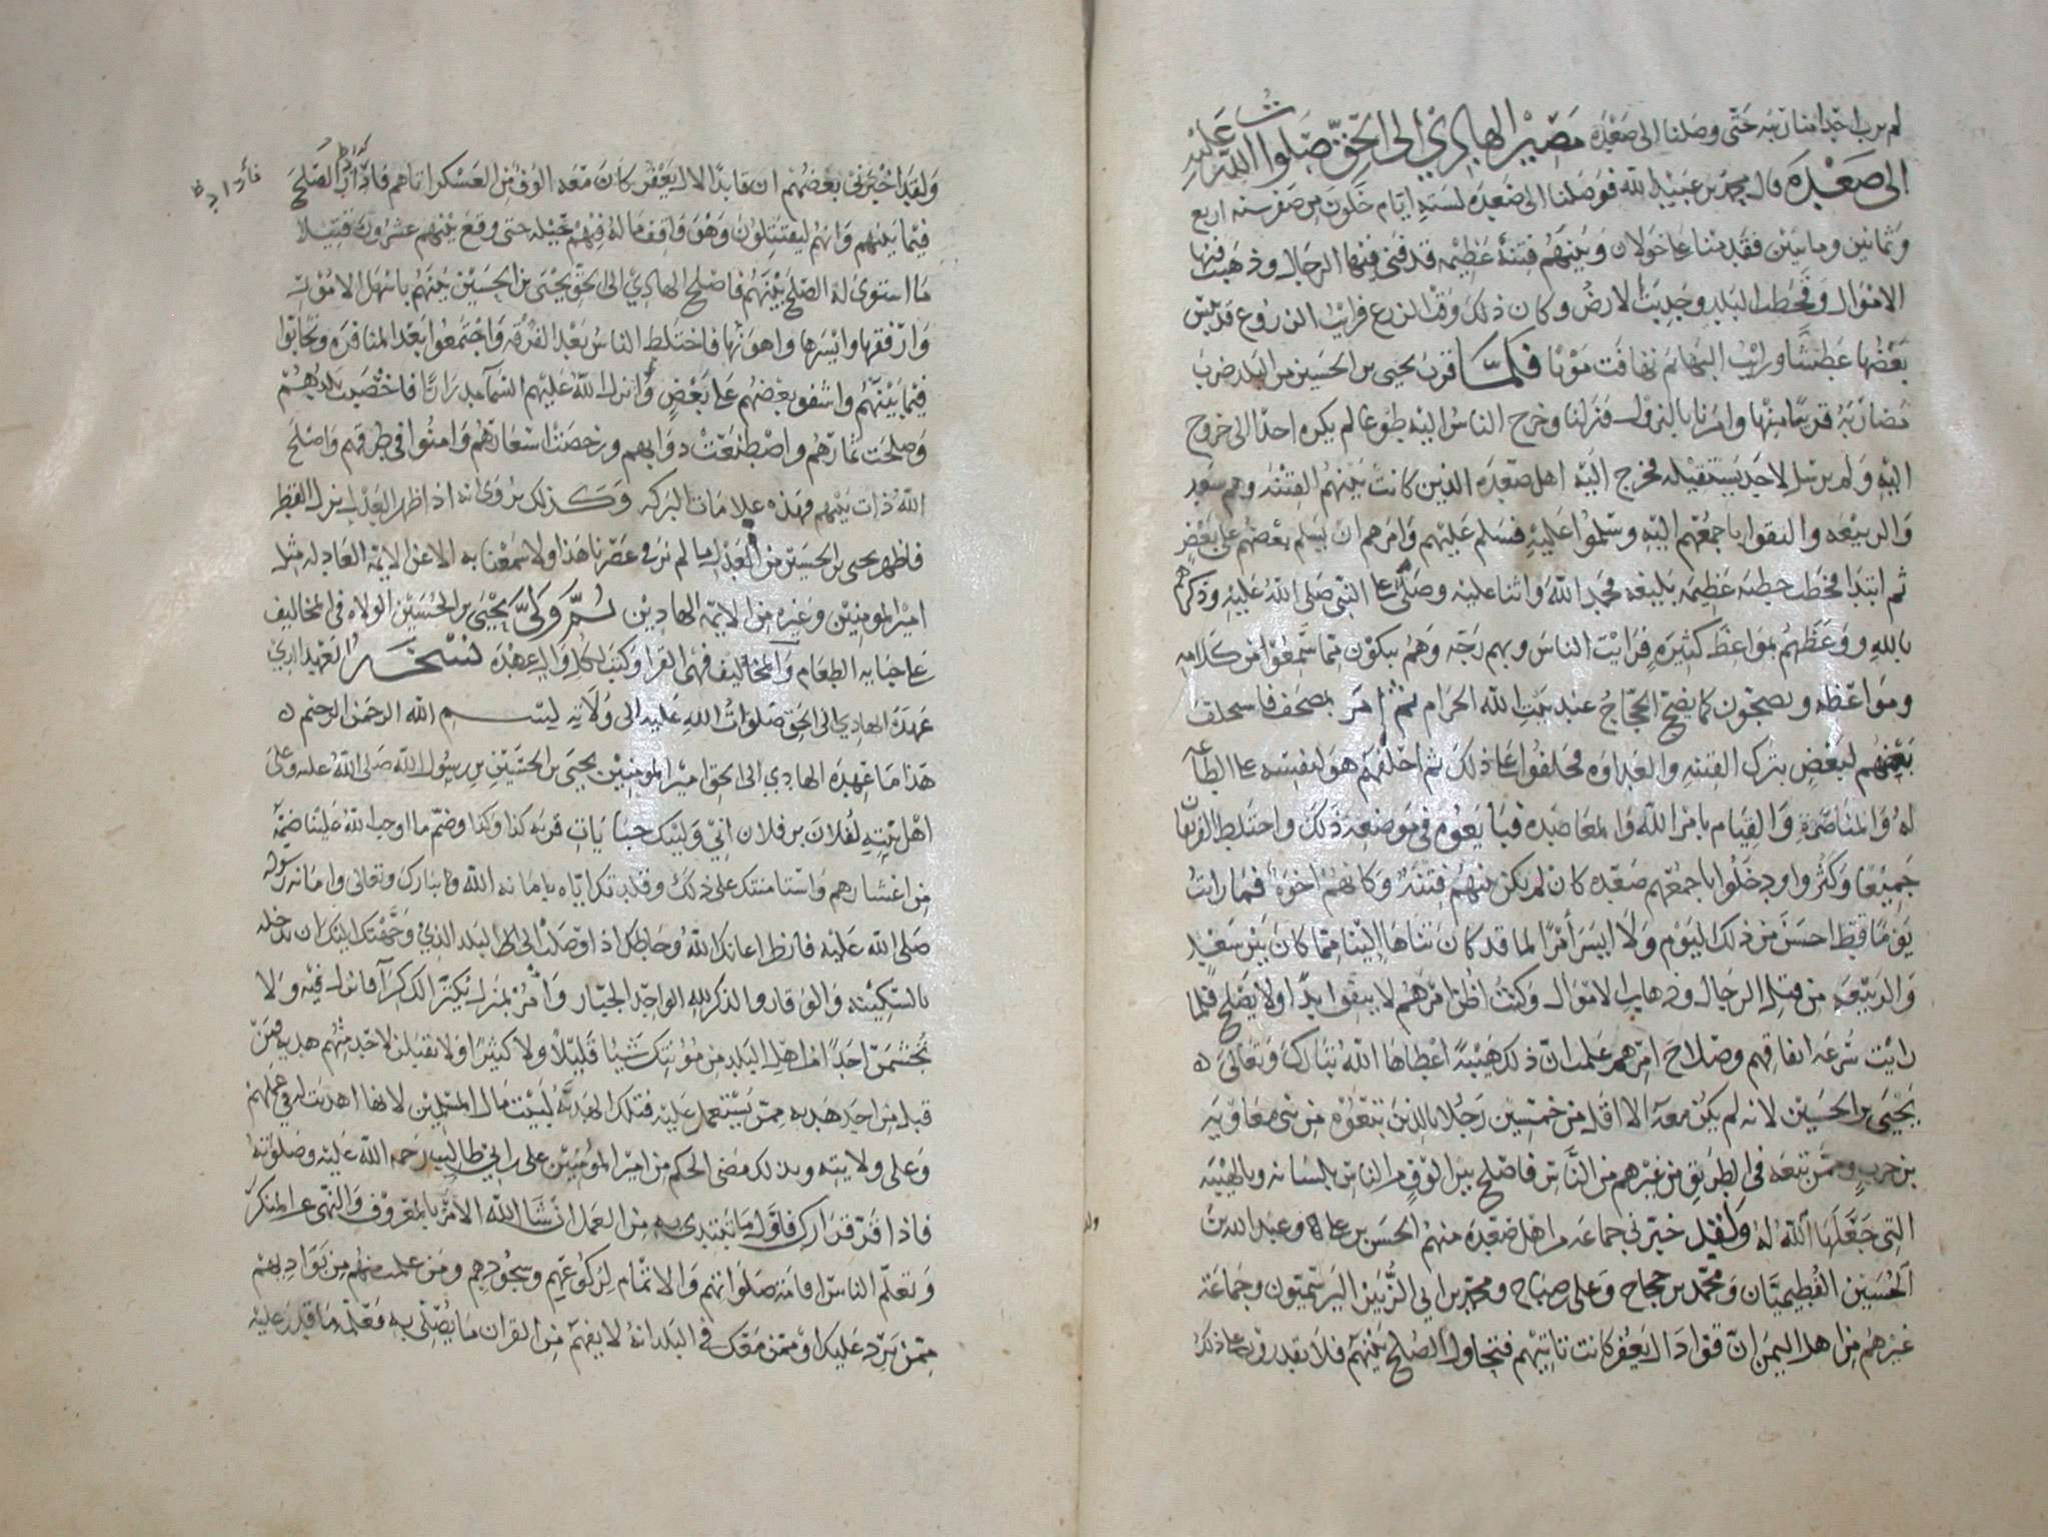 لم يرب احد منا ربه حتى وصلنا الى صعده مصير الهادي الى الحق صلوات الله عليه
الى صعده قال محمد بن عبيد الله فوصلنا الى صعده لسته ايام خلون من صفر سنه اربع
وثمانين ومايتين فقدمنا على خولان وبينهم فتنة عظيمه قد فنى فيها الرجال وذهبت فيها
الاموال وقحطت البلد وجدبت الارض وكان ذلك وقت الزرع فرايت الزروع قد يبس
بعضها عطشا ورايت البهائم تهافت موتا فلما قرب يحيى بن الحسين من البلد ضرب
مضاربه قريبا منها وامرنا بالنزول فنزلنا وخرج الناس اليه طوعا لم يكره احدا الى خروج
اليه ولم يرسل لاحد يستقبله فخرج اليه اهل صعده الذين كانت بينهم الفتنه وهم سعد
والربيعه والتقوا باجمعهم اليه وسلموا عليه فسلم عليهم وامرهم ان يسلم بعضهم على بعض
ثم ابتدا فخطب خطبه عظيمه بليغه فحمد الله واثنا عليه وصلى على النبي صلى الله عليه وذكرهم
بالله ووعظهم بمواعظ كثيره فرايت الناس وبهم رجه وهم يبكون مما سمعوا من كلامه
ومواعظه ويضجون كما يضج الحجاج عند بيت الله الحرام ثم امر بمصحف فاستحلف
بعضهم لبعض بترك الفتنه والعداوه فحلفوا على ذلك ثم احلفهم هو لنفسه على الطاعه
له والمناصره والقيام بامر الله والمعاضده فبايعوه في موضعه ذلك واختلط الفريقان
جميعا وكثروا ودخلوا باجمعهم صعده كان لم يكن بينهم فتنة وكانهم اخوة فما رايت
يوما قط احسن من ذلك اليوم ولا ايسر أمرا لما قد كان تناها الينا مما كان بين سعد
والربيعه من قتل الرجال وذهاب الاموال وكنت اظن امرهم لا يتفق ابدا ولا يصلح فلما
رايت سرعه اتفاقهم وصلاح امرهم علمت ان ذلك هيبة اعطاها الله تبارك وتعالى ه
يحيى بن الحسين لانه لم يكن معه الا اقل من خمسين رجلا بالذين تبعوه من بني معاويه
بن حرب وممن تبعه في الطريق من غيرهم من الناس فاصلح بين الوف من الناس بلسانه وبالهيبه
التي جعلها الله له ولقد خبرني جماعه من اهل صعده منهم الحسن بن علي وعبد الله بن
الحسين الفطيميان ومحمد بن حجاج وعلي صباح ومحمد بن ابي الزبير اليرسميون وجماعة
غيرهم من اهل اليمن ان قواد ال يعفر كانت تاتيهم فتحاول الصلح بينهم فلا يقدرون على ذلك
ولقد اخبرني بعضهم ان قايدا لال يعفر كان معه الوف من العسكر اتاهم فاذا راد الصلح
فأراد ظ
فيما بينهم وانهم ليقتتلون وهو واقف ما له فيهم حيله حتى وقع بينهم عشرون قتيلا
ما استوى له الصلح بينهم فاصلح الهادي الى الحق يحيى بن الحسين بينهم باسهل الامور
وارفقها وايسرها واهونها فاختلط الناس بعد الفرقه واجتمعوا بعد المنافره وتحابوا
فيما بينهم واشفق بعضهم على بعض وانزل الله عليهم السماء مدرارا فاخصبت بلدهم
وصلحت ثمارهم واصطنعت دوابهم ورخصت اسعارهم وامنوا في طرقهم واصلح
الله ذات بينهم فهذه علامات البركه وكذلك يروى انه اذا ظهر العدل نزل القطر
فاظهر يحيى بن الحسين من العدل ما لم نر في عصرنا هذا ولا سمعنا به الا عن الايمه العادله مثل
امير المومنين وغيره من الايمه الهادين ثم ولى يحيى بن الحسين الولاه في المخاليف
على جبايه الطعام والمخاليف فهى القرا وكتب لكل وال عهده نسخة العهد الذي
عهده الهادي الى الحق صلوات الله عليه الى ولاته بسم الله الرحمن الرحيم ه
هذا ما عهده الهادي الى الحق امير المومنين يحيى بن الحسين بن رسول الله صلى الله عليه وعلى
اهل بيته لفلان بن فلان اني وليتك جبايات قريه كذا وكذا وضم ما اوجب الله علينا ضمه
من اعشارهم واستامنتك على ذلك وقلدتك اياه بامانه الله تبارك وتعالى وامانه رسوله
صلى الله عليه فانظر اعانك الله وحاطك اذا وصلت الى البلد الذي وجهتك اليك ان تدخله
بالسكينه والوقار والذكر لله الواحد الجبار وأمر بمنزل يكترا لك كرا فانزل فيه ولا
تجشمن احدا من اهل البلد من مؤنتك شيا قليلا ولا كثيرا ولا تقبلن لاحد منهم هديه فمن
قبل من احد هديه ممن يستعمل عليه فتلك الهدية لبيت مال المسلمين لانها اهديت له في عملهم
وعلى ولايته وبذلك مضى الحكم من امير المؤمنين علي بن ابي طالب رحمه الله عليه وصلوته
فاذا قر قرارك فاول ما تبتدى به من العمل ان شا الله الامر بالمعروف والنهى عن المنكر
وتعلم الناس اقامة صلواتهم والاتمام لركوعهم وسجودهم ومن علمت منهم من بواديهم
ممن يرد عليك او ممن معك في البلد انه لا يفهم من القران ما يصلى به فعلمه ما قدر عليه
ولقد